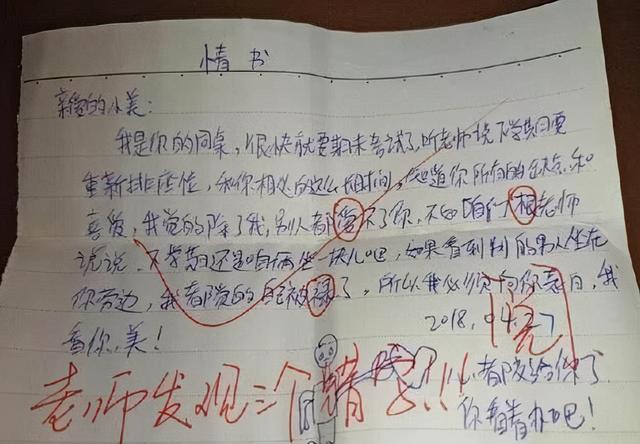 情书
亲爱的小美:
我是你的同桌,很快就要期末考试了,听老师说下学期要
重新排座位,和你相处的这么长时间,知道你所有的缺点和
喜爱,我觉的除了我,别人都爱不了你,不如咱们根老师
说说,下学期还是咱俩坐一块儿吧,如果看到别的男人坐在
你旁边,我都觉的自己被禄了,所以我必须向你表白,我
看你,美!
2018.04.27
老师发现三个错字!!!
都交给你了
你看着办吧!